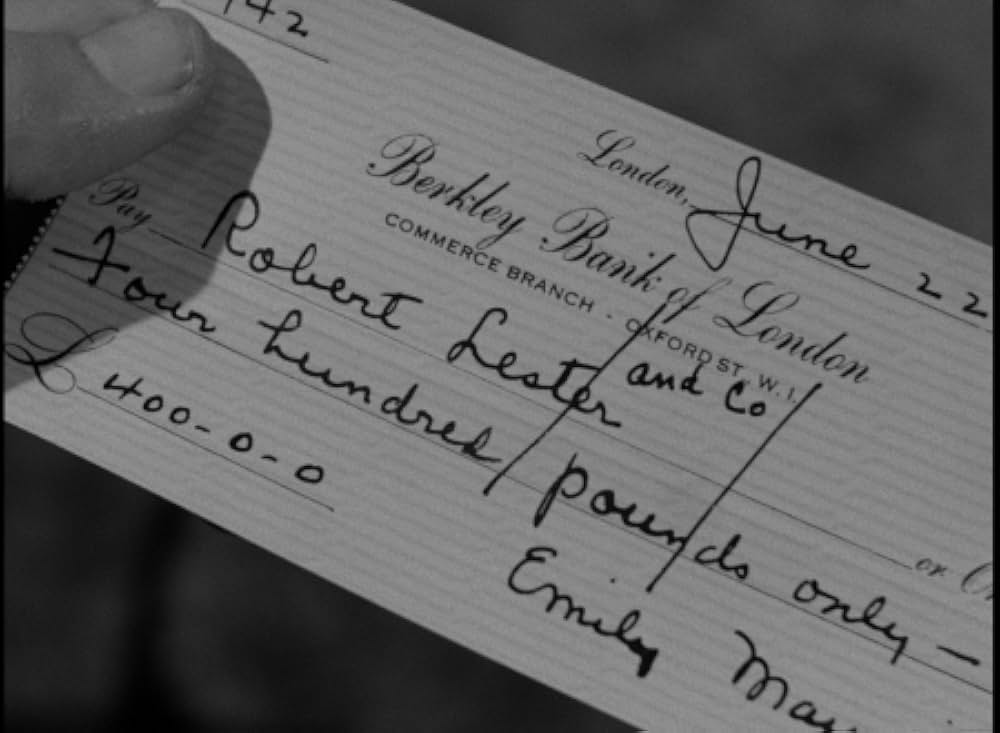 142
London, June 22
Berkley Bank of London
COMMERCE BRANCH - OXFORD ST. W.1.
Pay Robert Lester
and Co
or
Four hundred pounds only —
£ 400-0-0
Emily